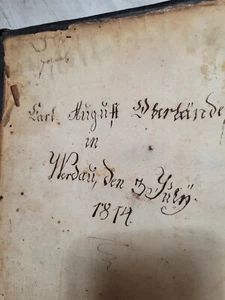 Carl August Oberlände
in
Werdau, den 3 July.
1814.